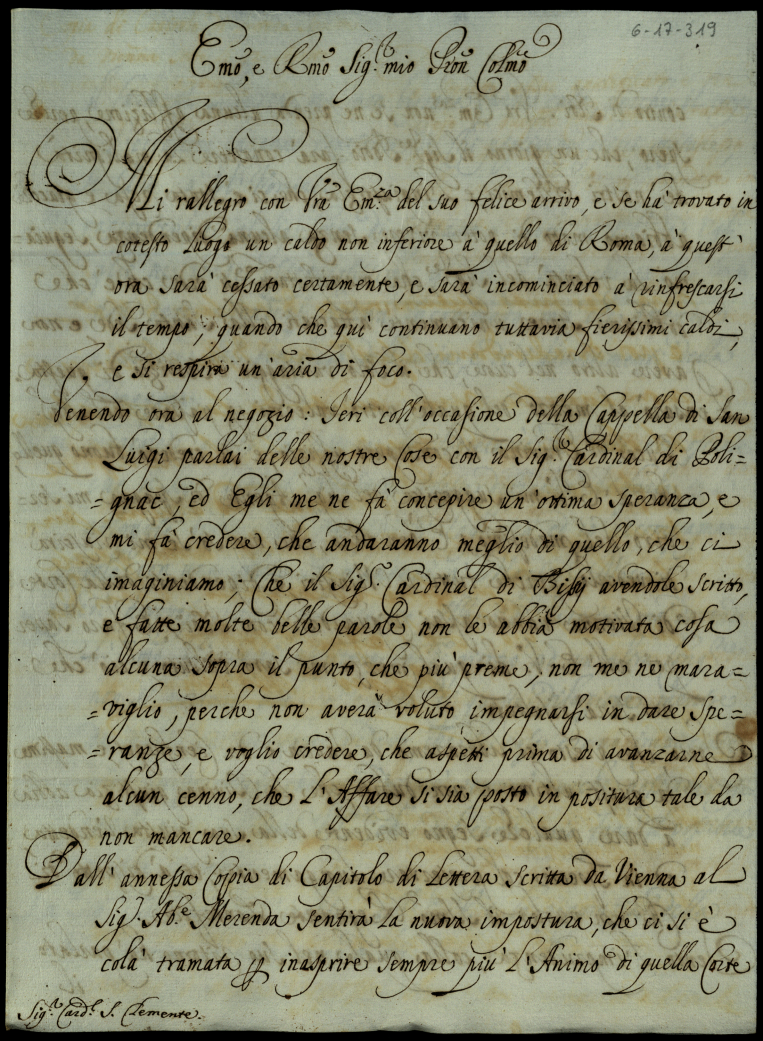 6-17-319
Emo, e Rmo Sig.r mio Pron Colmo
Mi rallegro con Vra Em.za del suo felice arrivo, e se hà trovato in
cotesto Luogo un caldo non inferiore à quello di Roma, à quest'
ora sarà cessato certamente, e sarà incominciato à rinfrescarsi
il tempo; quando che quì continuano tuttavia fierissimi caldi,
e si respira un'aria di foco.
Venendo ora al negozio: Ieri coll'occasione della Cappella di San
Luigi parlai delle nostre Cose con il Sig.r Cardinal di Poli=
=gnac, ed Egli me ne fà concepire un'ottima speranza, e
mi fà credere, che andaranno meglio di quello, che ci
imaginiamo; Che il Sig.r Cardinal di Bissy avendole scritto,
e fatte molte belle parole non le abbia motivata cosa
alcuna sopra il punto, che più preme, non me ne mara=
=viglio, perche non averà voluto impegnarsi in dare spe=
=ranze, e voglio credere, che aspetti prima di avanzarne
alcun cenno, che L'Affare si sia posto in positura tale da
non mancare.
Dall'annessa Coppia di Capitolo di Lettera scritta da Vienna al
Sig.r Ab.e Merenda sentirà La nuova impostura, che ci si è
colà tramata p inasprire sempre più L'Animo di quella Corte
Sig.r Card.l S. Clemente.